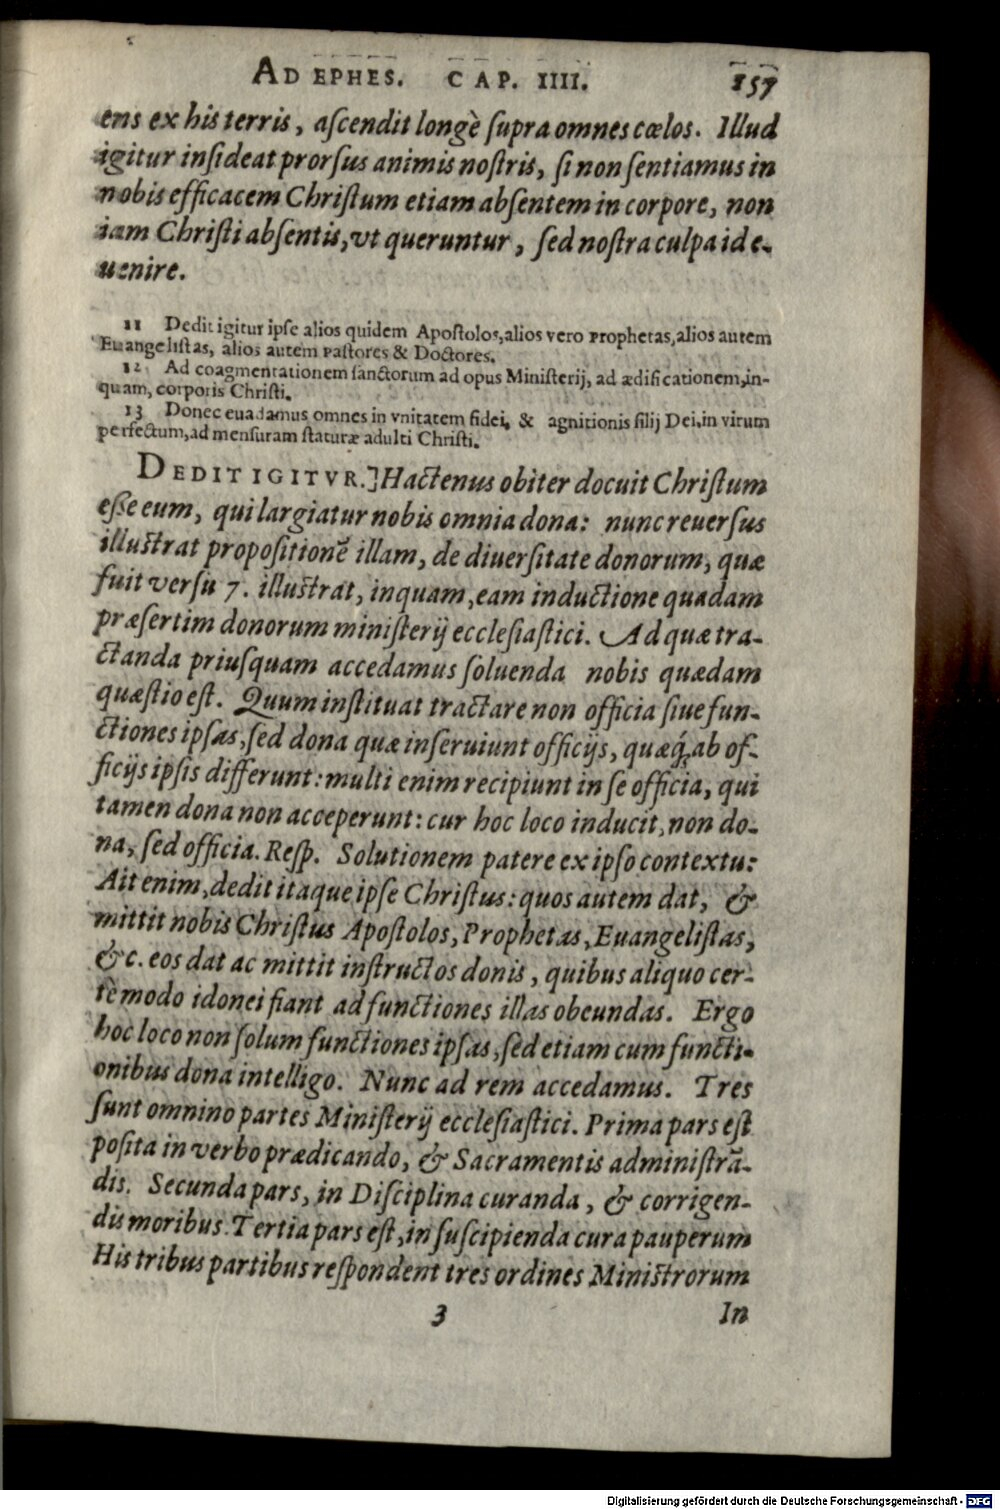 AD EPHES. CAP. IIII. 157
ens ex his terris, aſcendit longè ſupra omnes cœlos. Illud
igitur inſideat prorſus animis noſtris, ſi non ſentiamus in
nobis efficacem Chriſtum etiam abſentem in corpore, non
iam Chriſti abſentis, vt queruntur, ſed noſtra culpa id e-
uenire.
11 Dedit igitur ipſe alios quidem Apoſtolos, alios vero Prophetas, alios autem
Euangeliſtas, alios autem Paſtores & Doctores.
12 Ad coagmentationem ſanctorum ad opus Miniſterij, ad ædificationem, in-
quam, corporis Chriſti.
13 Donec euadamus omnes in vnitatem fidei, & agnitionis filij Dei, in virum
perfectum, ad menſuram ſtaturæ adulti Chriſti.
DEDIT IGITVR.] Hactenus obiter docuit Chriſtum
eſſe eum, qui largiatur nobis omnia dona: nunc reuerſus
illuſtrat propoſitionē illam, de diuerſitate donorum, quæ
fuit verſu 7. illuſtrat, inquam, eam inductione quadam
præſertim donorum miniſterij eccleſiaſtici. Ad quæ tra-
ctanda priuſquam accedamus ſoluenda nobis quædam
quæſtio eſt. Quum inſtituat tractare non officia ſiue fun-
ctiones ipſas, ſed dona quæ inſeruiunt officijs, quæq́; ab of-
ficijs ipſis differunt: multi enim recipiunt in ſe officia, qui
tamen dona non acceperunt: cur hoc loco inducit, non do-
na, ſed officia. Reſp. Solutionem patere ex ipſo contextu:
Ait enim, dedit itaque ipſe Chriſtus: quos autem dat, &
mittit nobis Chriſtus Apoſtolos, Prophetas, Euangeliſtas,
&c. eos dat ac mittit inſtructos donis, quibus aliquo cer-
tè modo idonei fiant ad functiones illas obeundas. Ergo
hoc loco non ſolum functiones ipſas, ſed etiam cum functi-
onibus dona intelligo. Nunc ad rem accedamus. Tres
ſunt omnino partes Miniſterij eccleſiaſtici. Prima pars eſt
poſita in verbo prædicando, & Sacramentis adminiſtrā-
dis. Secunda pars, in Diſciplina curanda, & corrigen-
dis moribus. Tertia pars eſt, in ſuſcipienda cura pauperum
His tribus partibus reſpondent tres ordines Miniſtrorum
3 In
Digitalisierung gefördert durch die Deutsche Forschungsgemeinschaft - DFG